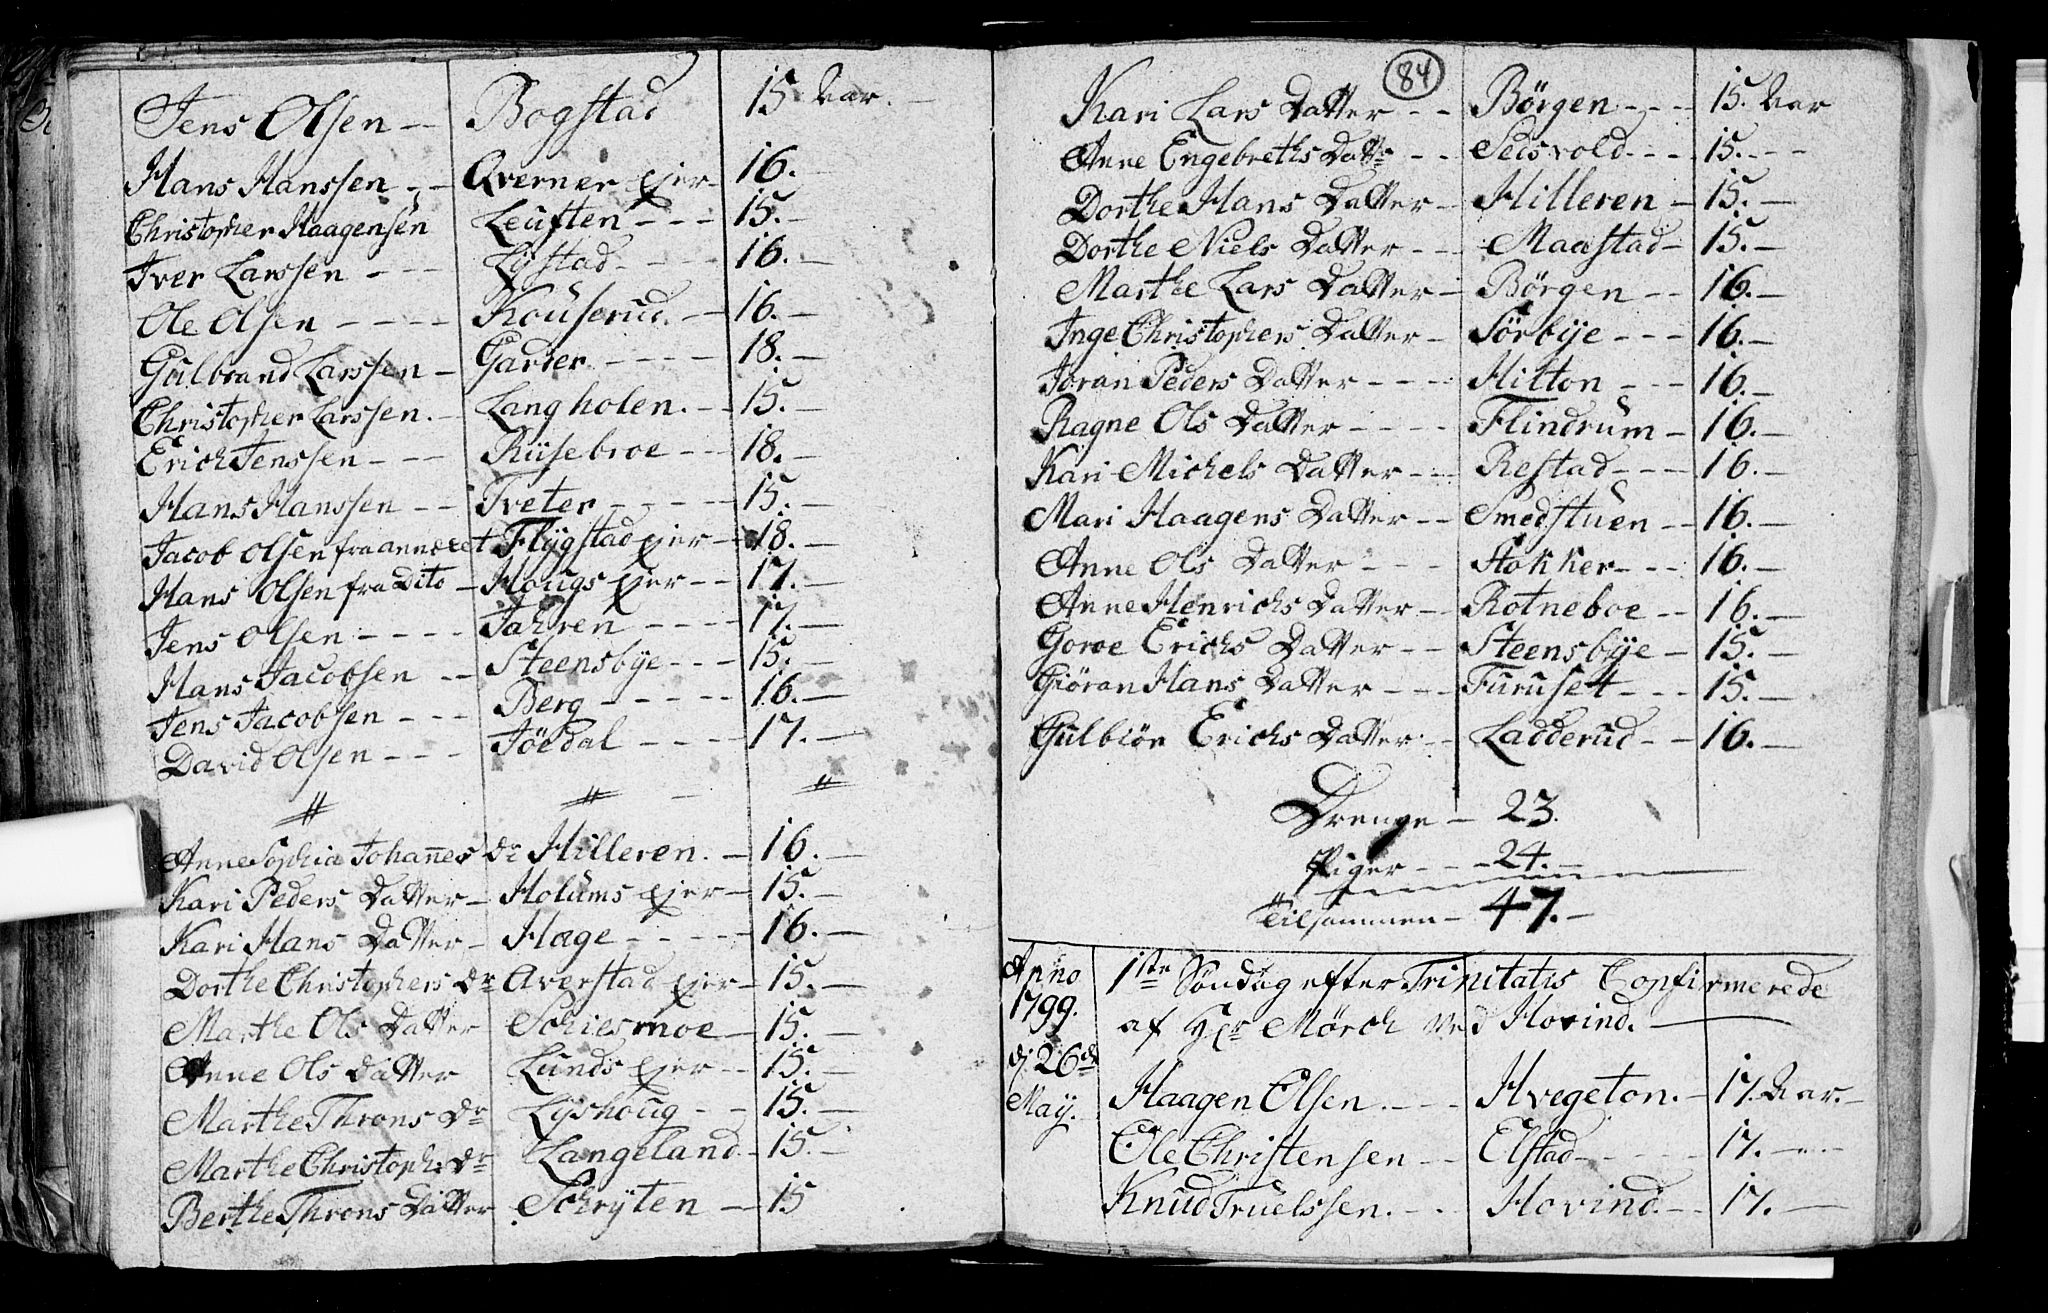 Jens Olsen -- Bogstad 15 Aar. -
Hans Hanssen -- Qverner ejer - 16. -
Christopher Haagensen Leuften - - - 15. -
Iver Larssen - - - Lystad - - - - 16. -
Ole Olsen - - - - Kouserud. - 16. -
Gulbrand Larssen - Garser - - - - 18. -
Christopher Larssen. - Langholen. - - 15. -
Erich Jenssen - - - Riisebroe - - 18. -
Hans Hanssen - - Tveter - - - - - 15. -
Jacob Olsen fra annexet Flygstad ejer - 18. -
Hans Olsen fra Dito - Hougs ejer - - 17. -
Jens Olsen - - - - Jahren - - - - 17. -
Hans Jacobsen - - Steensbye - - - 15. -
Jens Jacobsen - - - Berg - - - - - 16. -
David Olsen - - - Jöedal - - - - 17. -
// // - //
Anne Sophia Johannes Dr Hilleren. - 16. -
Kari Peders Datter - Holums ejer - 15. -
Kari Hans Datter - Hage - - - - - 16. -
Dorthe Christophers Dr Averstad ejer - 15. -
Marthe Ols Datter Schiesmoe - 15. -
Anne Ols Datter Lunds ejer - - 15. -
Marthe Throns Dr Lyshoug - - 15. -
Marthe Christoph: Dr Langeland - 15. -
Berthe Throns Datter Schryten - 15
84
Kari Lars Datter - - Börgen - - - 15. Aar
Anne Engebreths Dattr - - Seisvold - - - 15. - - -
Dorthe Hans Datter - Hilleren - 15. -
Dorthe Niels Datter - - - Maastad - 15. -
Marthe Lars Datter - Börgen - - 16. -
Inge Christophers Datter - Sörbye - - - 16. -
Joran Peders Datter - - - - Hilton - - - 16. -
Ragne Ols Datter - - - - Flindrum - 16. -
Kari Michels Datter - - - Restad - - - 16. -
Mari Haagens Datter - - Smedstuen - - 16. -
Anne Ols Datter - - - Stokker - - - 16. -
Anne Henrichs Datter - - Rotneboe - - 16. -
Goroe Erichs Datter - - Steensbye - 15. -
Giöran Hans Datter - - - Furuset - - - 15. -
Gulbiör Erichs Datter - - Ladderud - - 16. -
Drenge - 23.
Piger - - - 24. -
Tilsammen - 47. -
Anno 1ste Söndag efter Trinitatis Confirmerede
1799. af Hr Mörch ved Hovind. -
d. 26de Haagen Olsen. - - - Hvegeton. - 17. Aar. -
May. Ole Christensen - - Elstad - - - - - 17. - - -
Knud Truelssen. - - Hovind - - 17. -